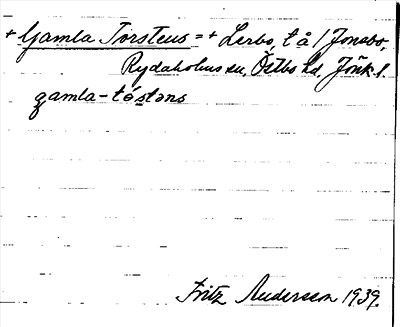 + Gamla Torstens = + Lerbo, t å / Jonsbo,
Rydaholms sn, Östbo hd, Jönk. l.
gamla-tóstəns
Fritz Andersson 1939.